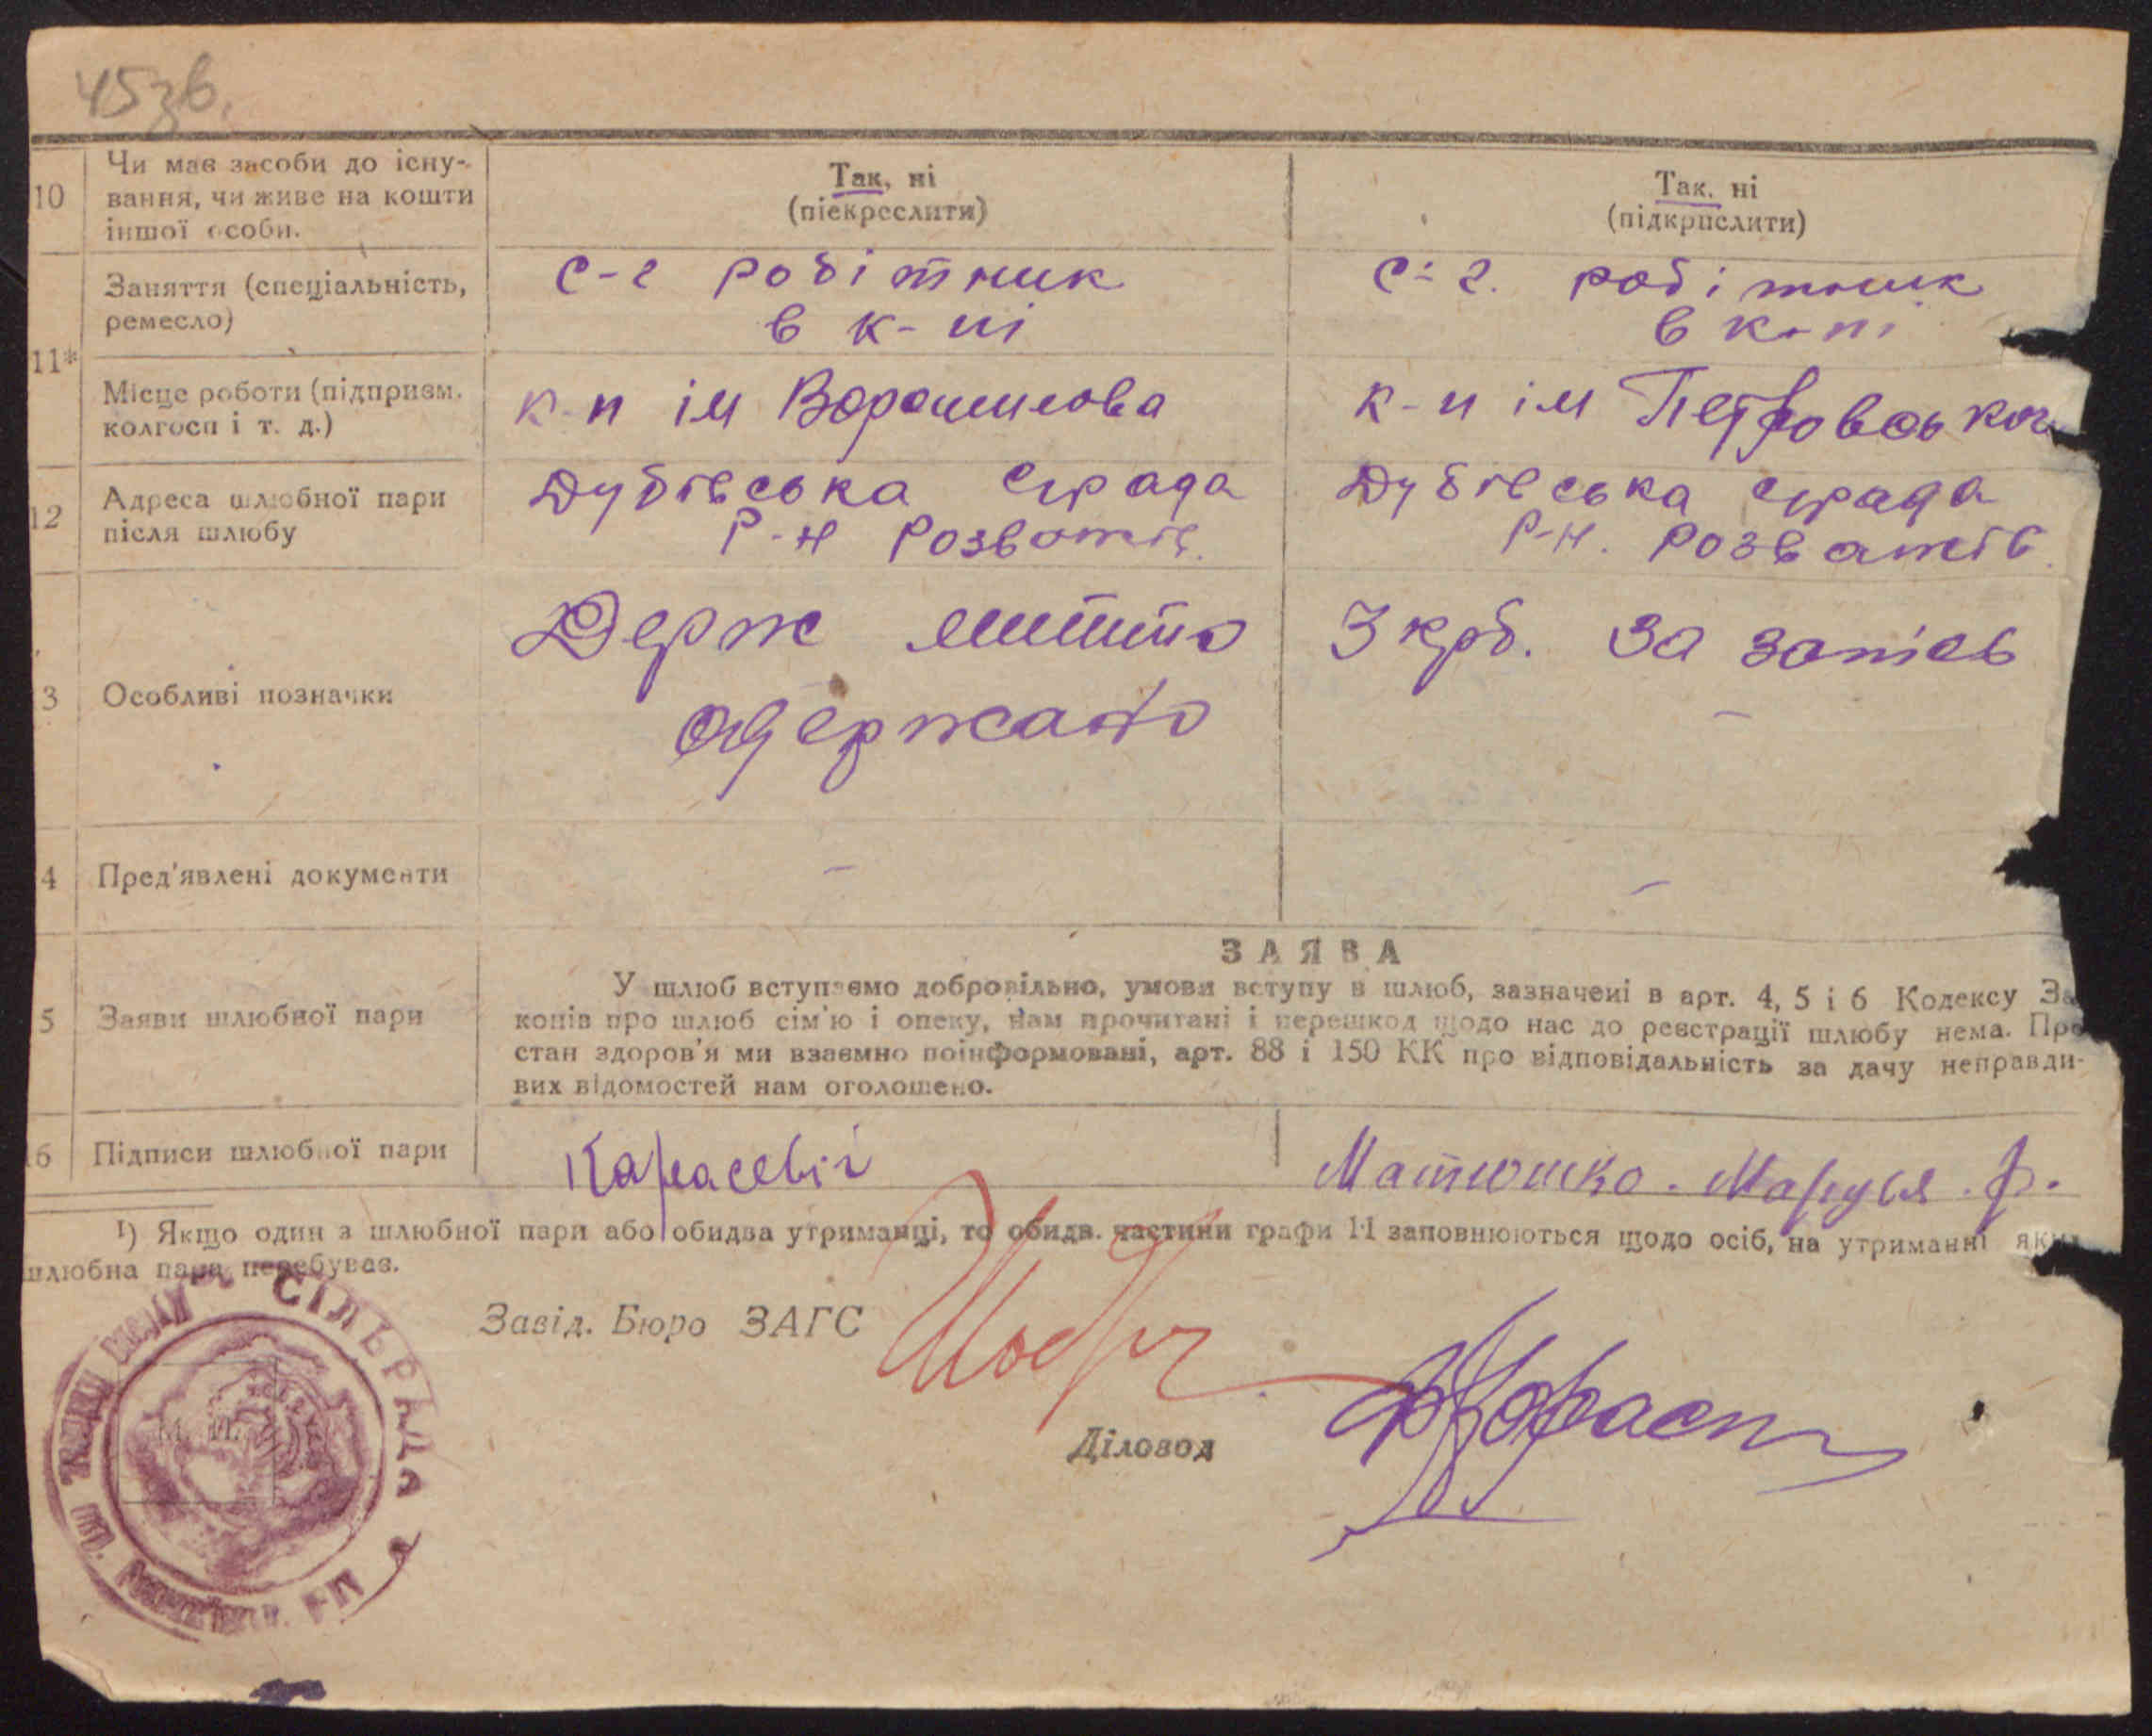 45зв.
10
Чи має засоби до існу-
вання, чи живе на кошти
іншої особи.
Так, ні
(піекреслити)
Так, ні
(підкрислити)
11*
Заняття (спеціальність,
ремесло)
с-г робітник
в к-пі
с-г. робітник
в к-пі
Місце роботи (підприєм.
колгосп і т. д.)
к-п ім Ворошилова
к-п ім Петровського
12
Адреса шлюбної пари
після шлюбу
Дубівська с/рада
Р-н Розважів.
Дубівська с/рада
Р-н. Розважів.
3
Особливі позначки
Держ мито 3 крб. за запісь
одержано
4
Пред'явлені документи
–
–
5
Заяви шлюбної пари
ЗАЯВА
У шлюб вступаємо добровільно, умови вступу в шлюб, зазначені в арт. 4, 5 і 6 Кодексу За
конів про шлюб сім'ю і опеку, нам прочитані і перешкод щодо нас до реєстрації шлюбу нема. Про
стан здоров'я ми взаємно поінформовані, арт. 88 і 150 КК про відповідальність за дачу неправди-
вих відомостей нам оголошено.
6
Підписи шлюбної пари
Карасевіч
Матюшко. Маруся. Ф.
¹) Якщо один з шлюбної пари або обидва утриманці, то обидв. частини графи 11 заповнюються щодо осіб, на утриманні яких
шлюбна пара перебуває.
СІЛЬРАДА
М. П.
Завід. Бюро ЗАГС
Діловод